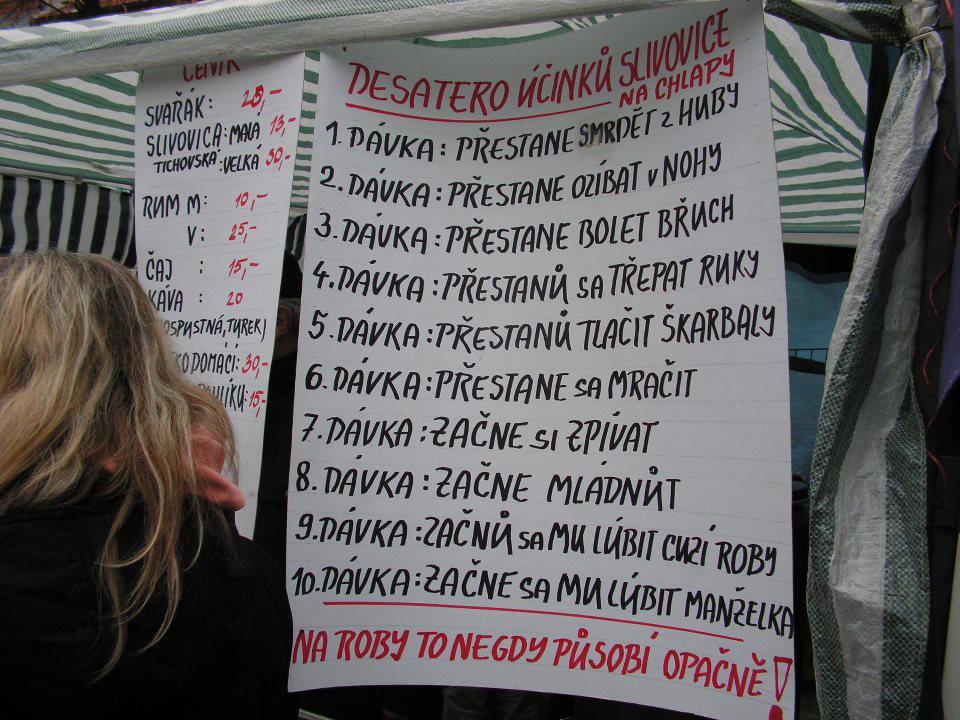 CENÍK
SVAŘÁK: 28,-
SLIVOVICA: MALÁ 13,-
TICHOVSKÁ: VELKÁ 30,-
RUM M: 10,-
V: 25,-
ČAJ : 15,-
KÁVA : 20
OSPUSTNÁ, TUREK)
KO DOMÁCÍ: 30,-
15,-
DESATERO ÚČINKŮ SLIVOVICE
NA CHLAPY
1. DÁVKA: PŘESTANE SMRDĚT z HUBY
2. DÁVKA: PŘESTANE OZIBAT v NOHY
3. DÁVKA: PŘESTANE BOLET BŘUCH
4. DÁVKA: PŘESTANŮ sa TŘEPAT RUKY
5. DÁVKA: PŘESTANŮ TLAČIT ŠKARBALY
6. DÁVKA: PŘESTANE sa MRAČIT
7. DÁVKA: ZAČNE si ZPÍVAT
8. DÁVKA: ZAČNE MLÁDNÚT
9. DÁVKA: ZAČNŮ sa MU LÚBIT CUZÍ ROBY
10. DÁVKA: ZAČNE sa MU LÚBIT MANŽELKA
NA ROBY TO NEGDY PŮSOBÍ OPAČNĚ!